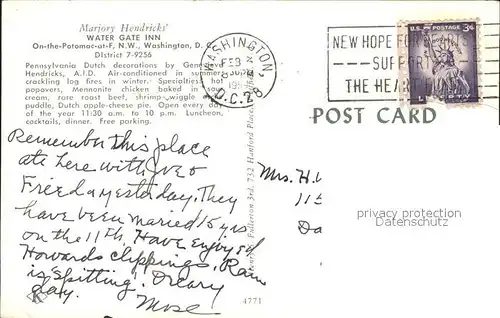 Marjory Hendricks'
WATER GATE INN
On-the-Potomac-at-F, N.W., Washington, D.
DIstrict 7-9256
Pennsylvania Dutch decorations by
Hendricks, A.I.D. Air-conditioned in summer
crackling log fires in winter. Specialties: hot
popovers, Mennonite chicken baked in sour
cream, rare roast beef, shrimp wiggle
puddle, Dutch apple-cheese pie. Open every day
of the year 11:30 a.m. to 10 p.m. Luncheon,
cocktails, dinner. Free parking.
WASHINGTON
FEB
D.C. 28
NEW HOPE FOR
SUPPORT
THE HEART
U.S. POSTAGE 3¢
POST CARD
Remember this place
ate here with Joe &
Freeda yesterday. They
have been maried 15 yrs
on the 11th. Have enjoyed
Howards clippings. Rain
is "spitting". Dreary
day.
Mose
Fullerton 3rd, 732 Hanford Place
4771
K
Mrs. H.
115
Da
privacy protection
Datenschutz